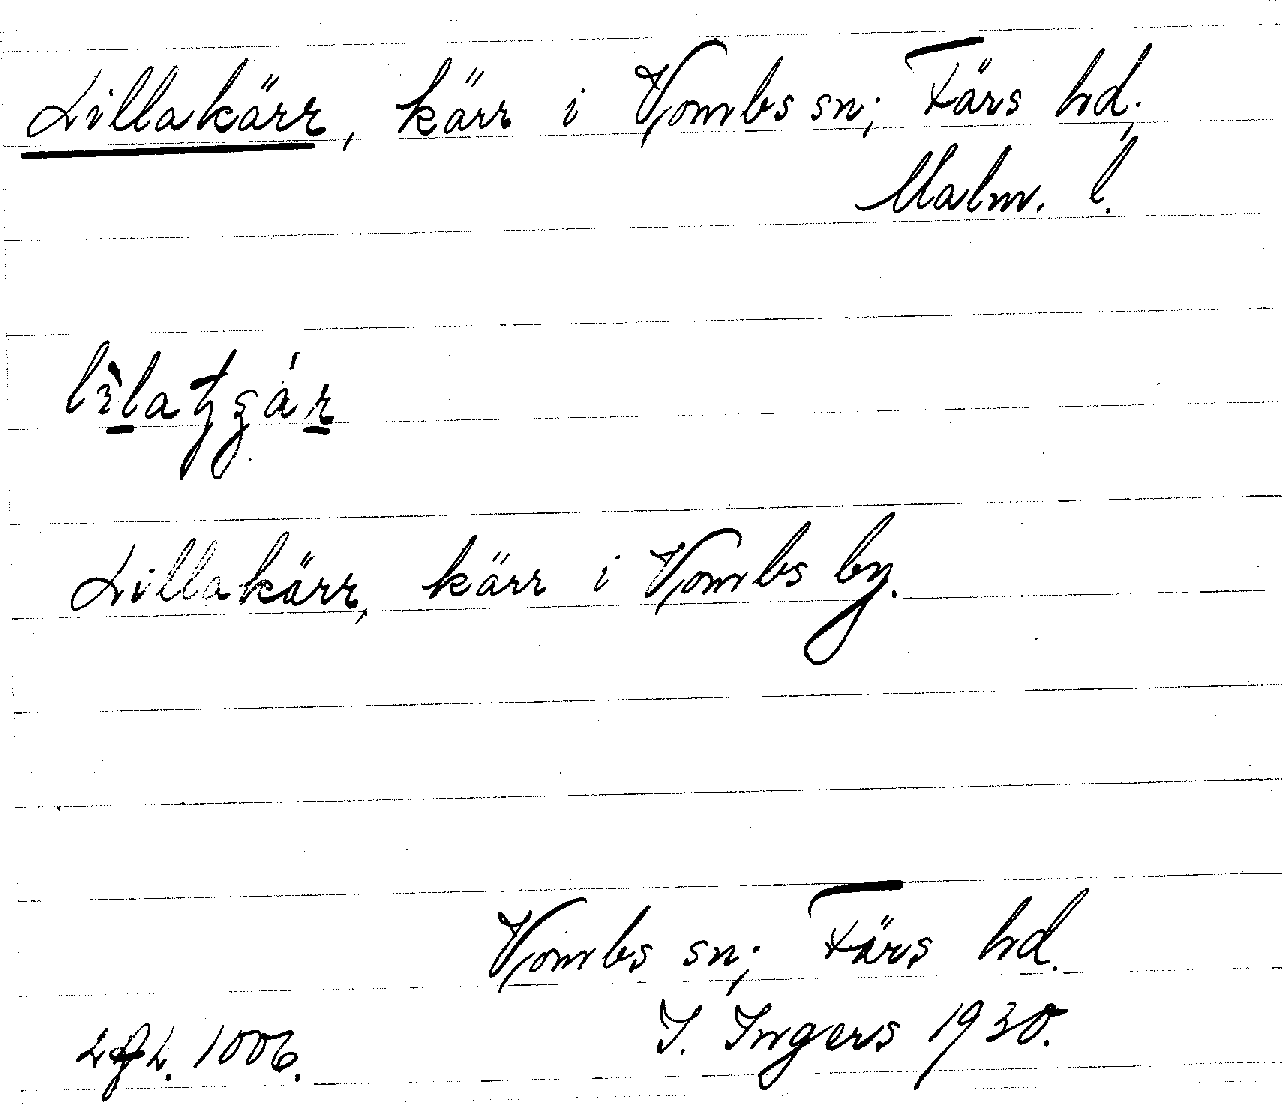 Lillakärr, kärr i Vombs sn; Färs hd,
Malm. l.
Lillakärr, kärr i Vombs by.
Vombs sn; Färs hd.
I. Ingers 1930.
1006.